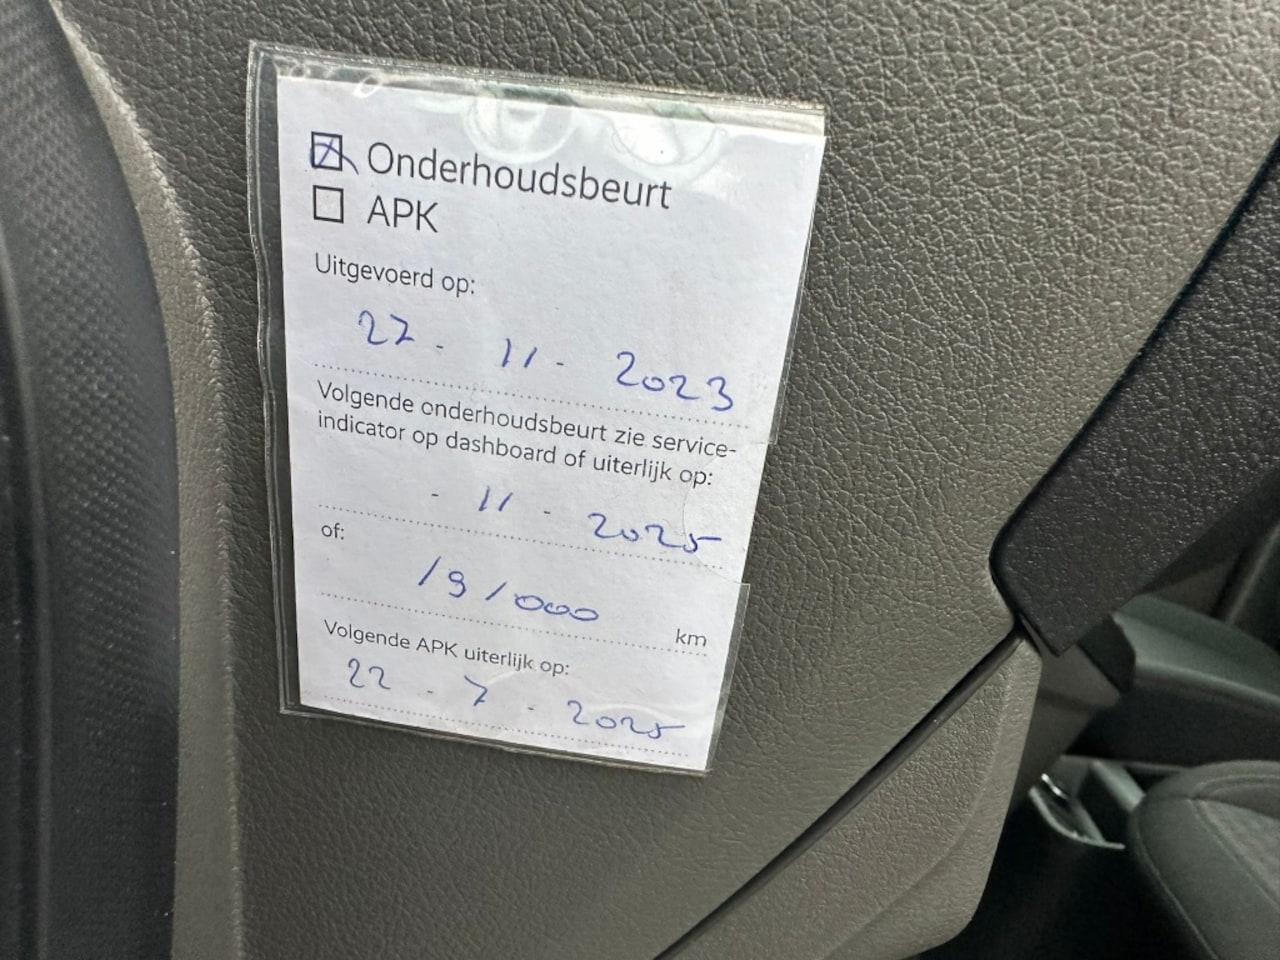 Onderhoudsbeurt
APK
Uitgevoerd op:
27 - 11 - 2023
Volgende onderhoudsbeurt zie service-
indicator op dashboard of uiterlijk op:
- 11 - 2025
of:
191000 km
Volgende APK uiterlijk op:
22 - 7 - 2025